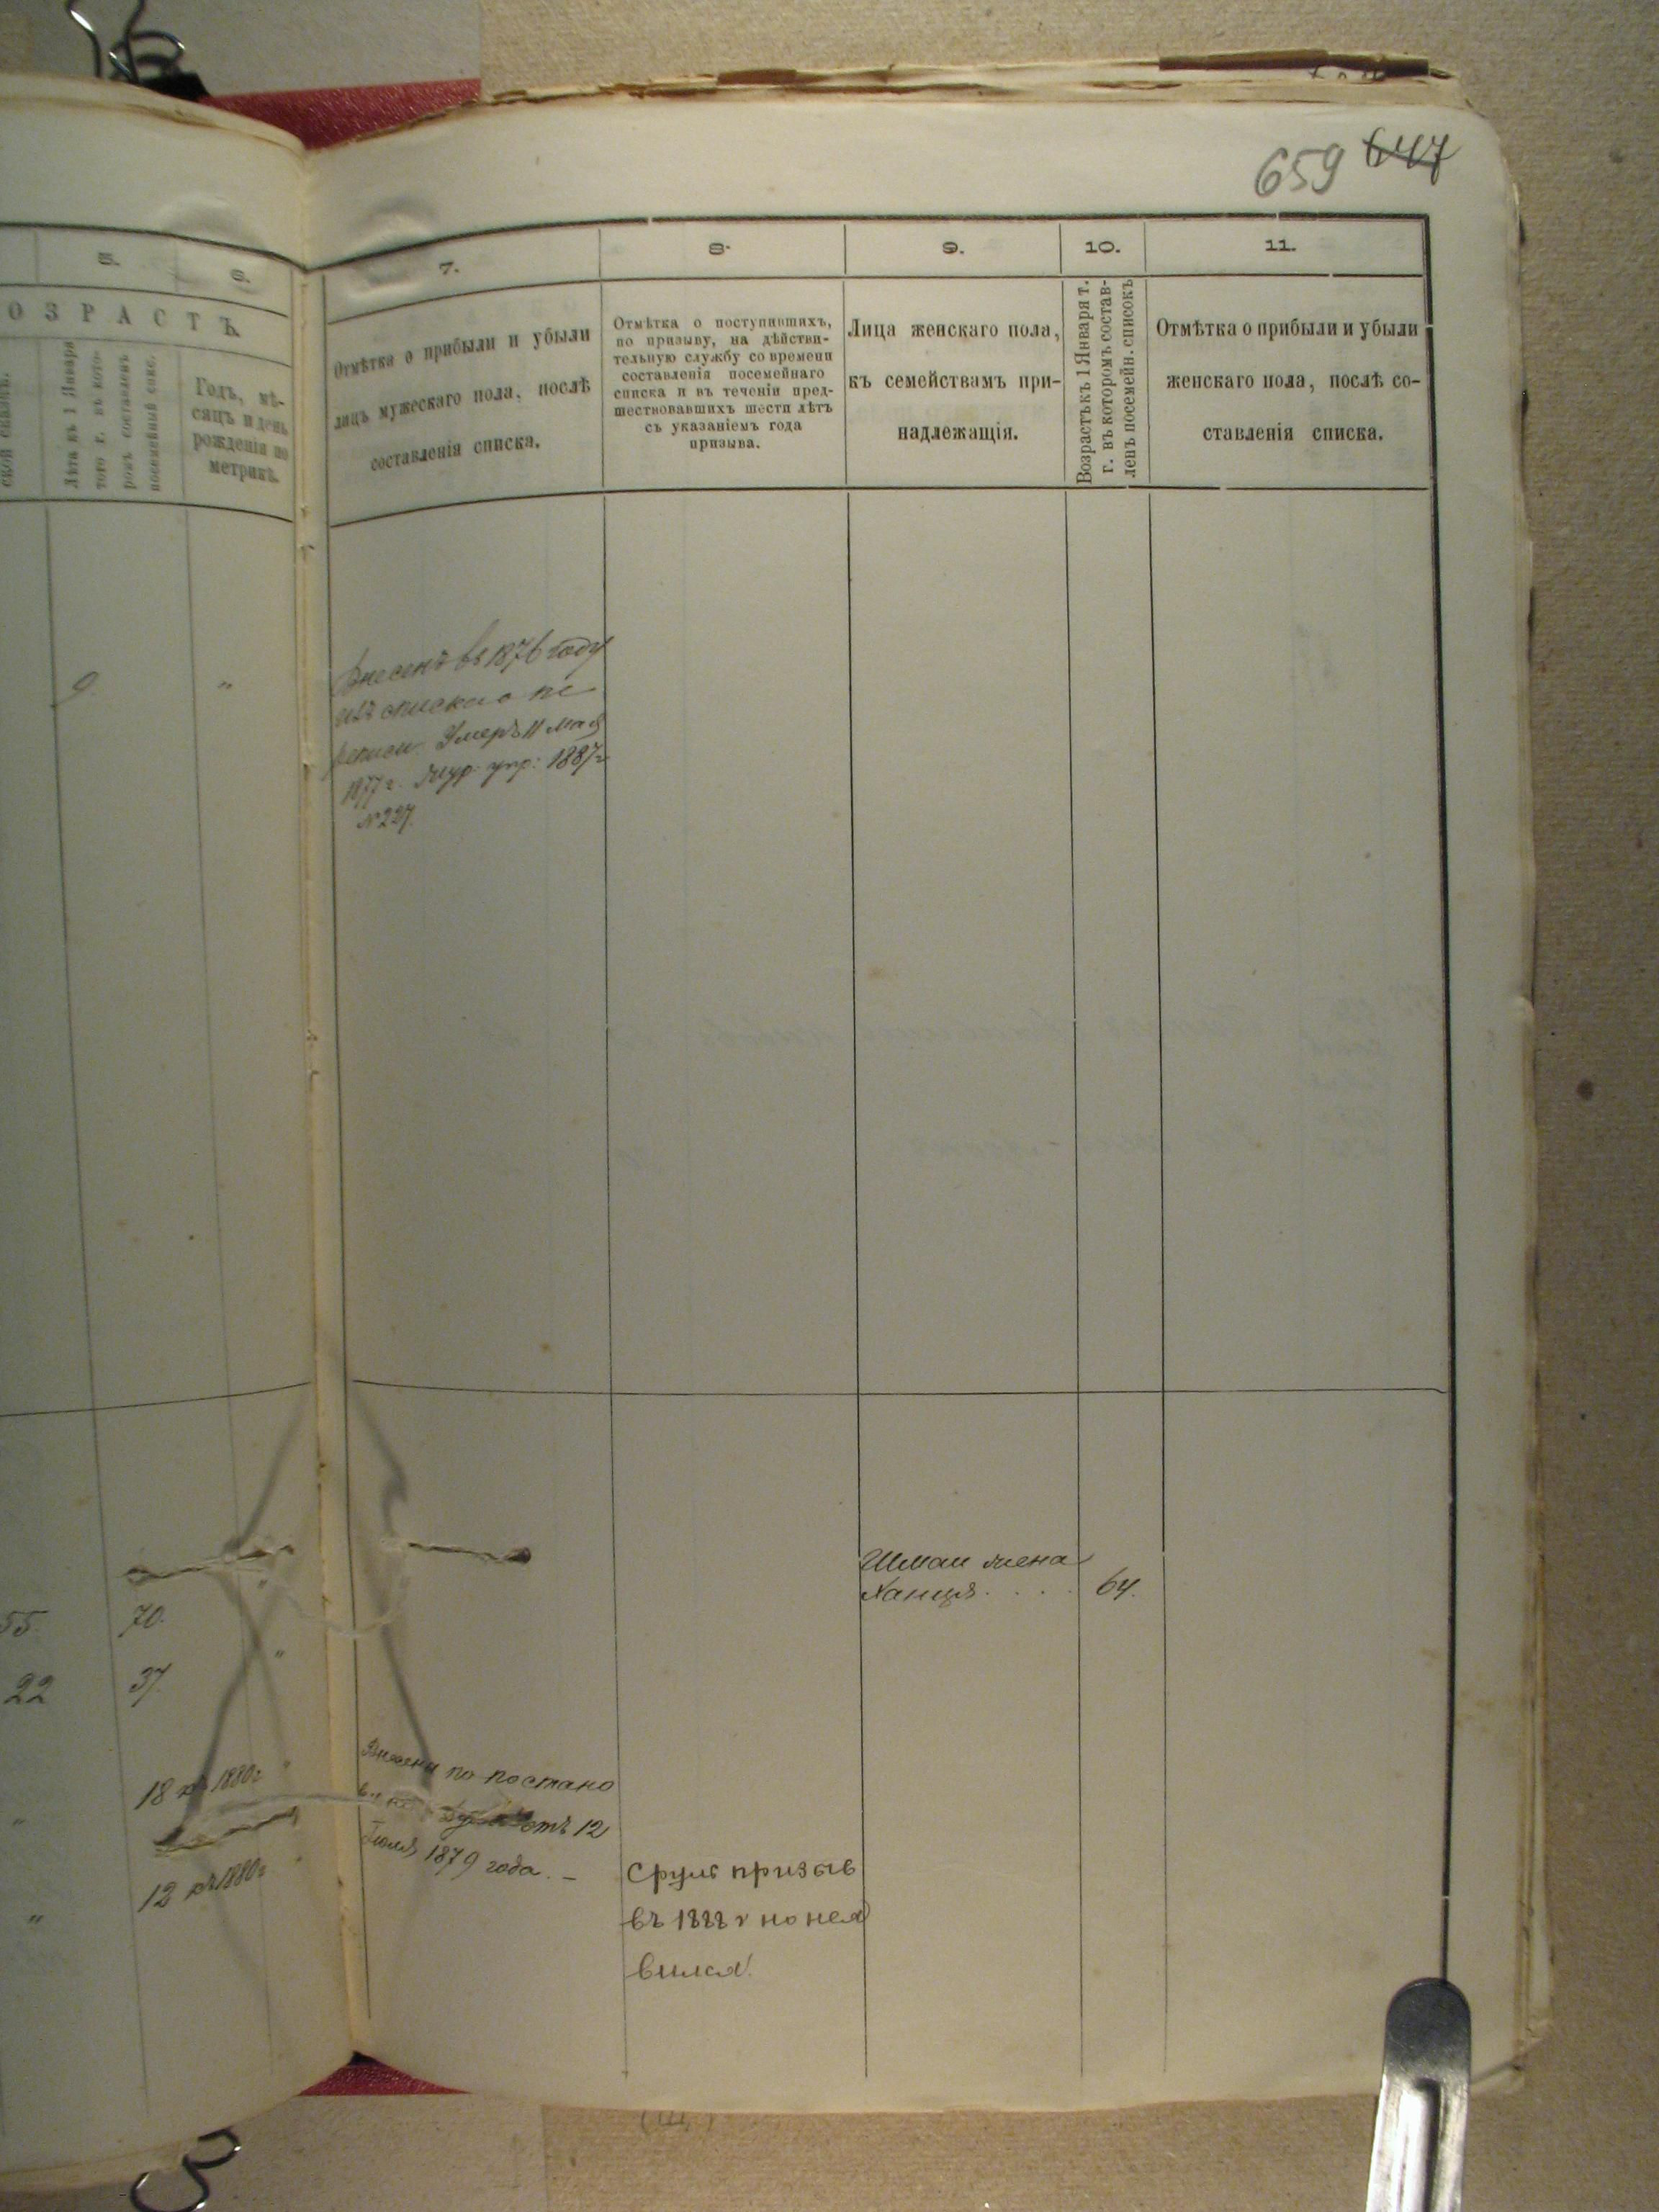 659 647
5. 6.
ОЗРАСТЪ.
Лѣта къ 1 Января
того г. въ кото-
ромъ составленъ
посемейный спис.
Годъ, мѣ-
сяцъ и день
рожденія по
метрикѣ.
9 "
55 70
22 37
18 къ 1880 г "
" 12 къ 1880 г
7. 8. 9. 10. 11.
Отмѣтка о прибыли и убыли
лицъ мужескаго пола, послѣ
составленія списка.
Отмѣтка о поступившихъ,
по призыву, на дѣйстви-
тельную службу со времени
составленія посемейнаго
списка и въ теченіи пред-
шествовавшихъ шести лѣтъ
съ указаніемъ года
призыва.
Лица женскаго пола,
къ семействамъ при-
надлежащія.
Возрастъ къ 1 Января т.
г. въ которомъ состав-
ленъ посемейн. списокъ
Отмѣтка о прибыли и убыли
женскаго пола, послѣ со-
ставленія списка.
Внесенъ въ 1876 году
изъ списка о не
Умеръ 11 мая
1877 г. Жур. упр: 1887 г
№ 227.
Шмаи жена
Ханця . . . . 64.
Внесены по постано
отъ 12
Іюля 1879 года. –
Сруль призыв
въ 1888 г но нея
вился